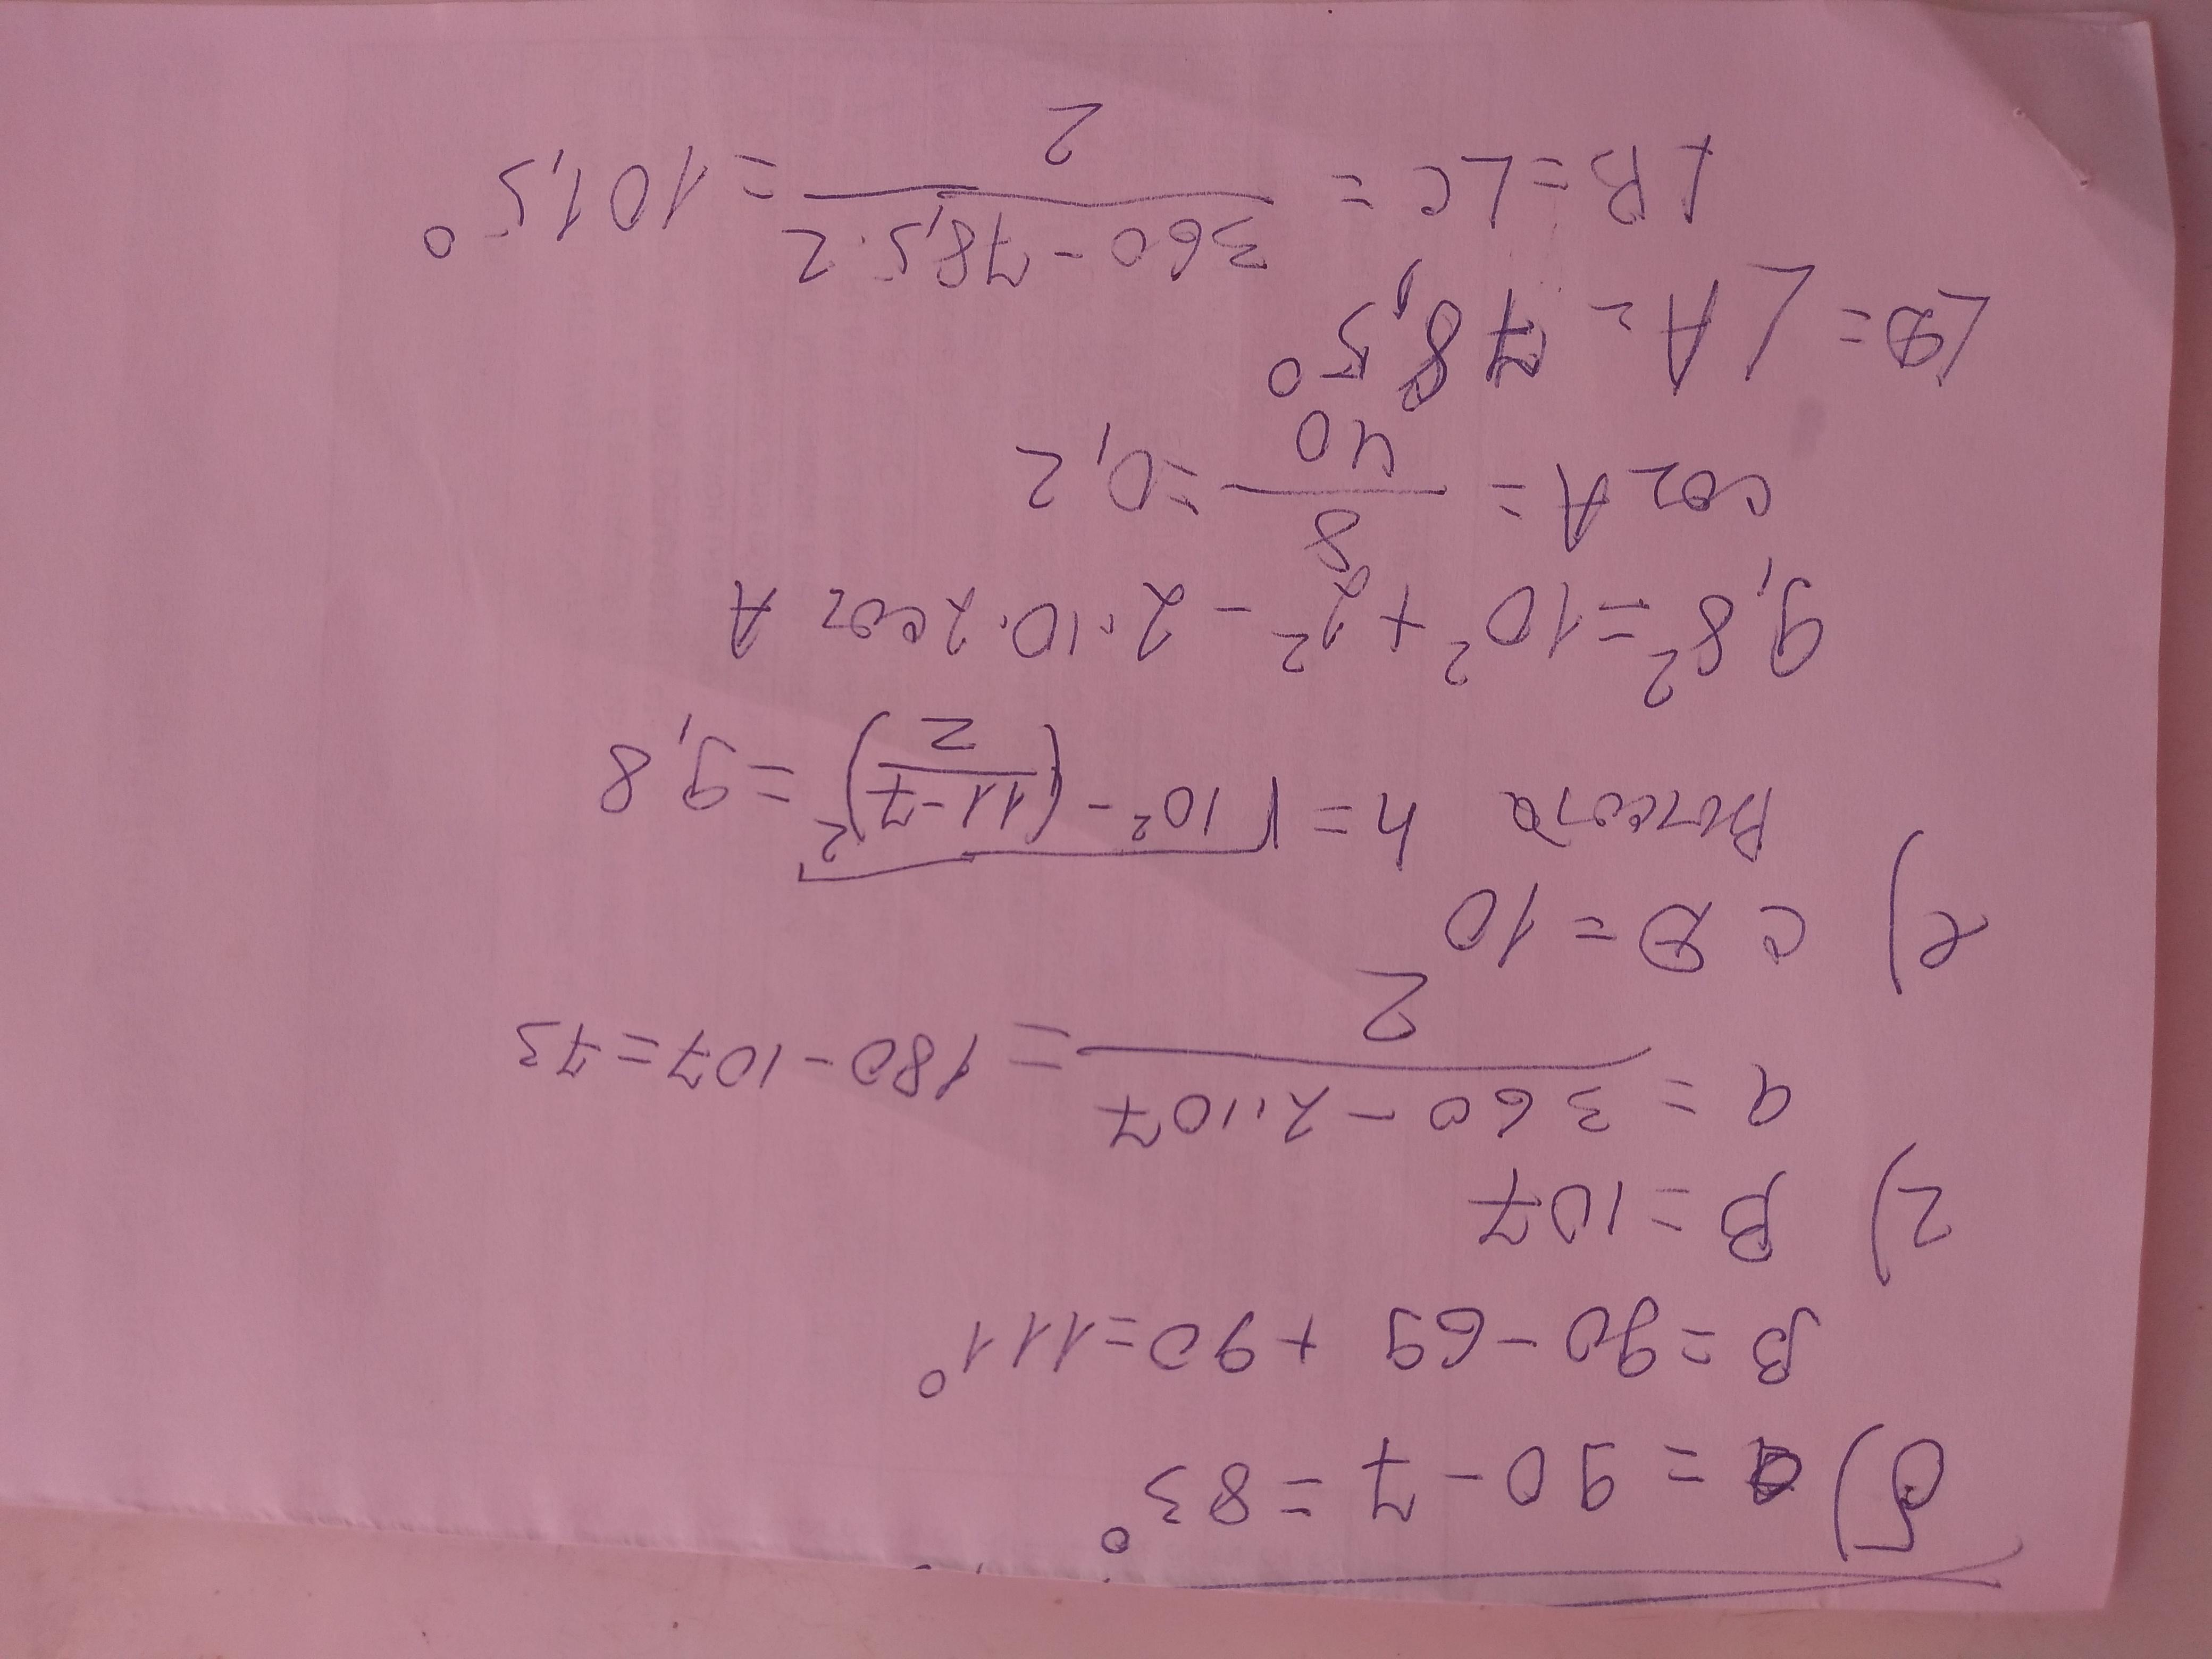 б) α = 90 - 7 = 83°
β = 90 - 69 + 90 = 111°
г) β = 107
α = (360 - 2·107)/2 = 180 - 107 = 73
е) CD = 10
Высота h = √(10² - ((11-7)/2)²) = 9,8
9,8² = 10² + 2² - 2·10·2 cos A
cos A = 8/40 = 0,2
∠D = ∠A = 78,5°
∠B = ∠C = (360 - 78,5·2)/2 = 101,5°